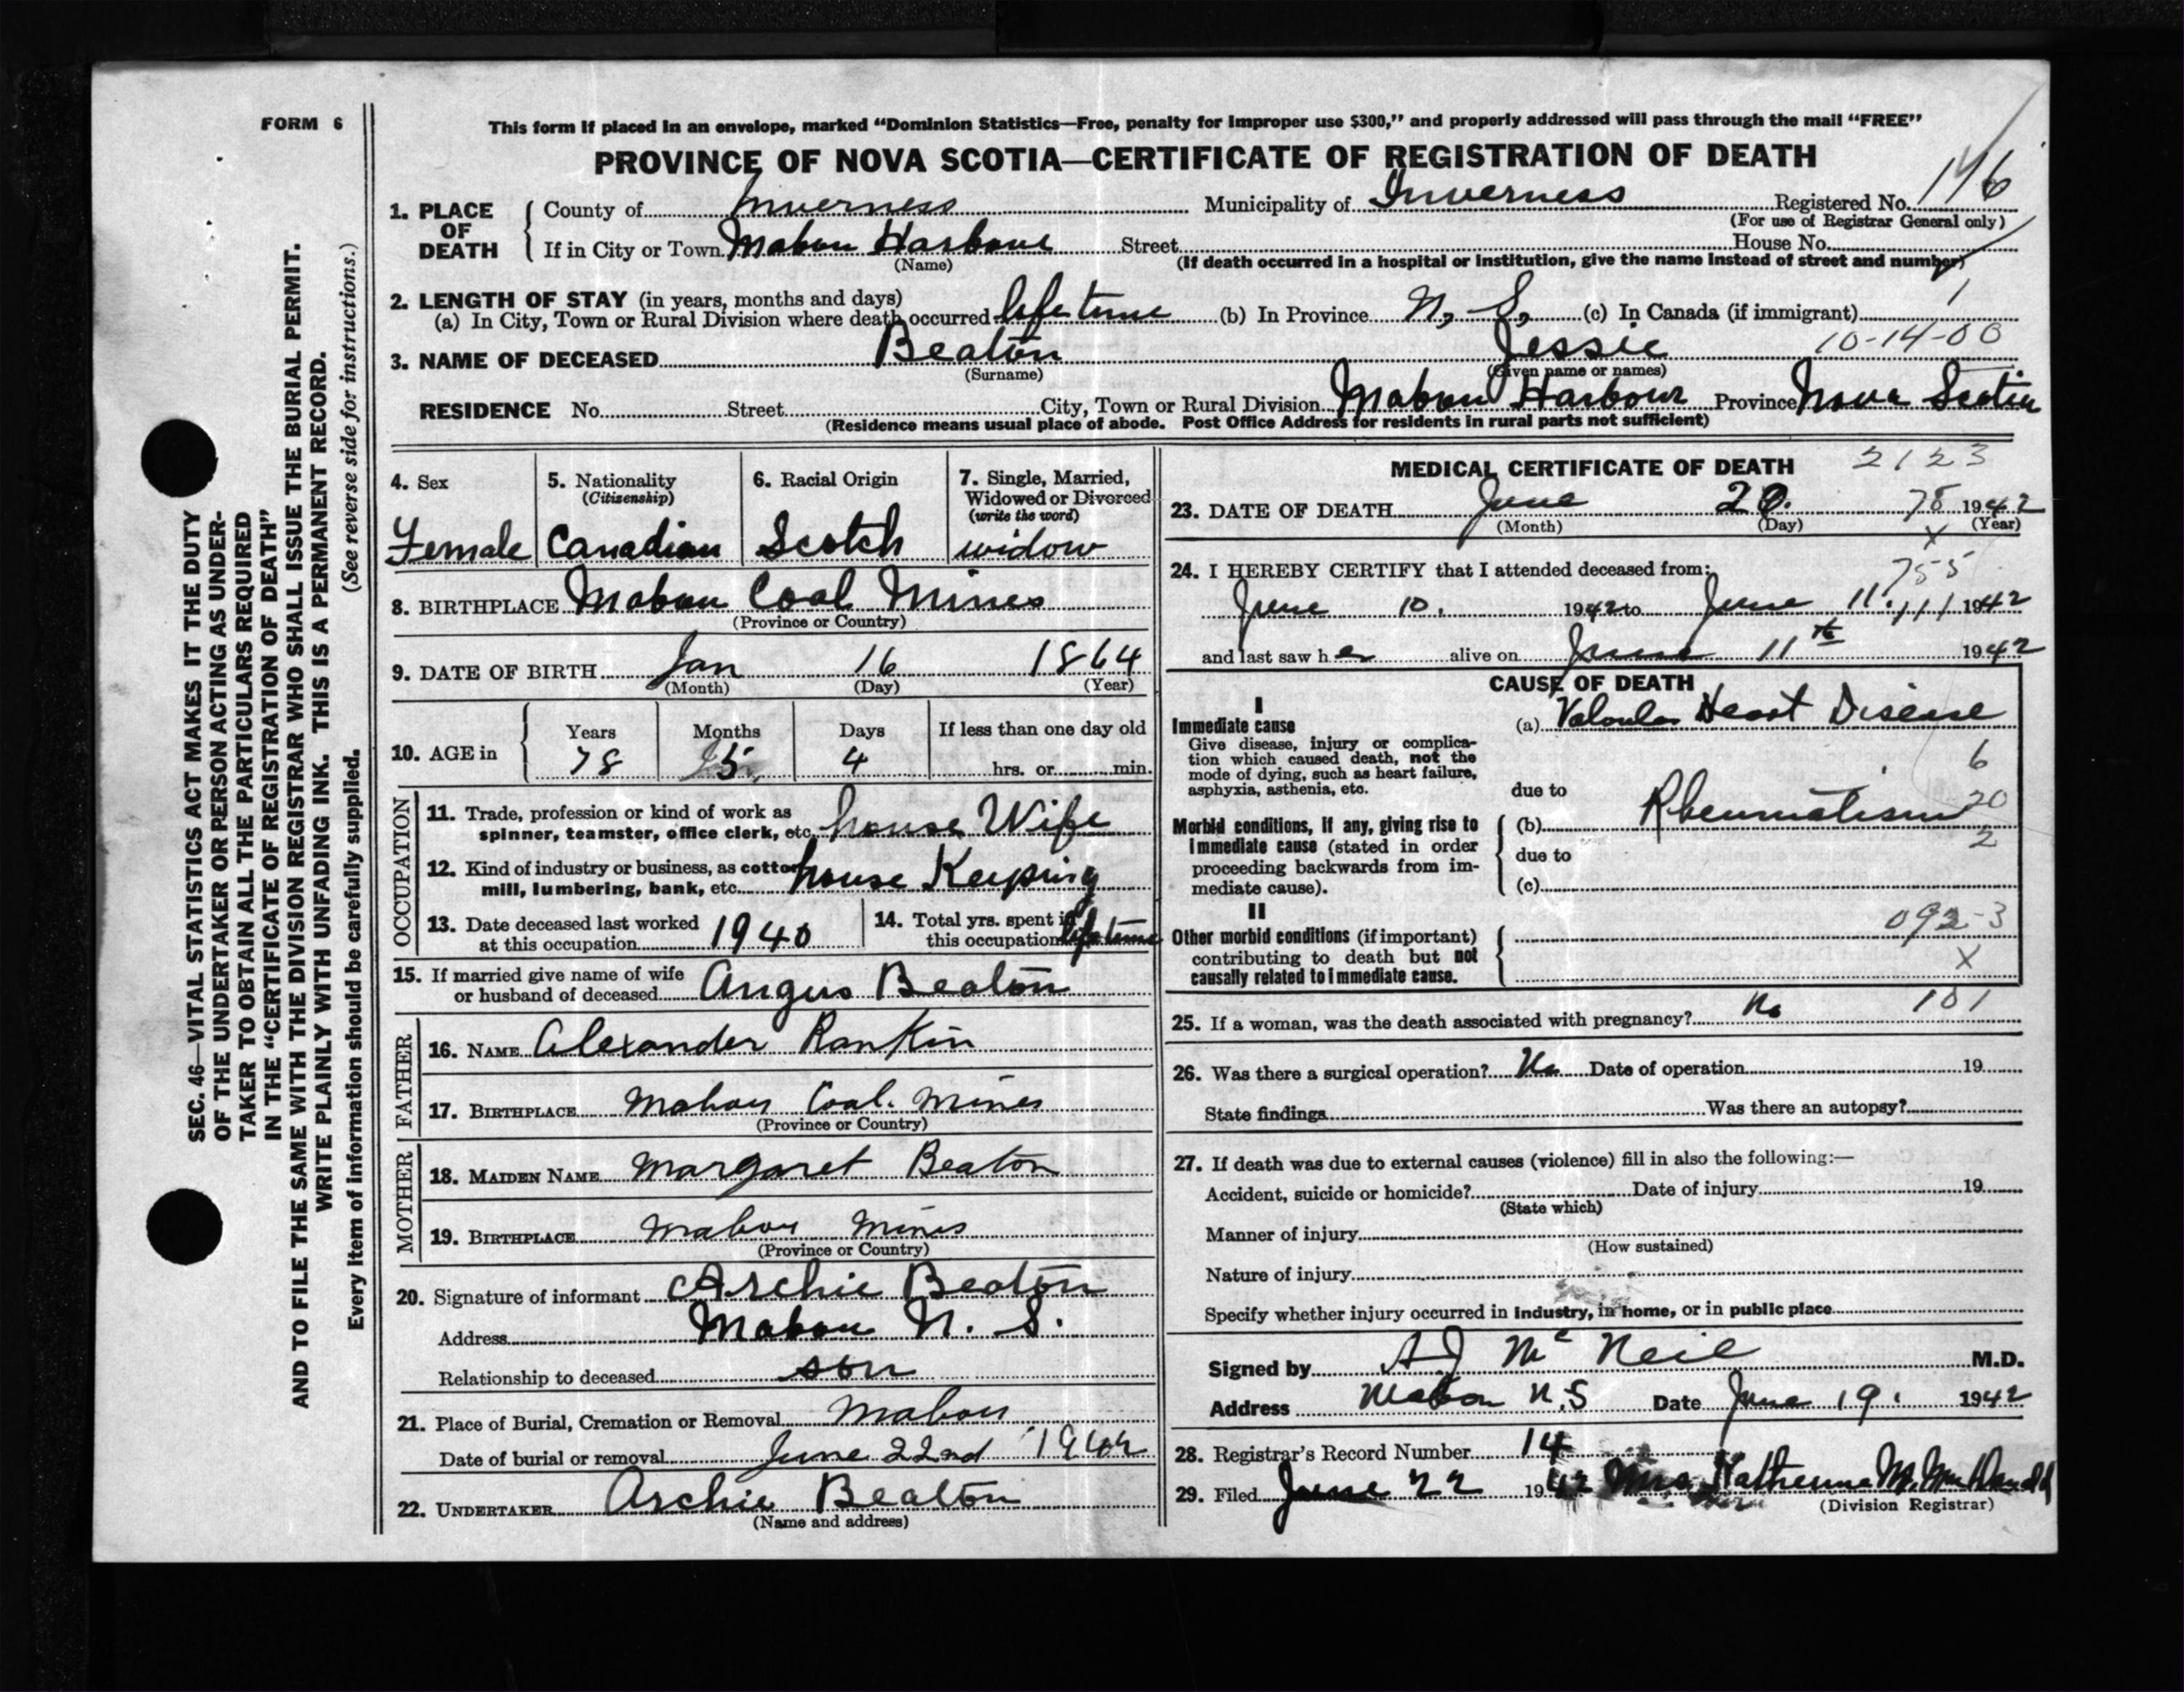 FORM 6
This form if placed in an envelope, marked "Dominion Statistics—Free, penalty for improper use $300," and properly addressed will pass through the mail "FREE"
PROVINCE OF NOVA SCOTIA—CERTIFICATE OF REGISTRATION OF DEATH
1. PLACE OF DEATH County of Inverness Municipality of Inverness Registered No. 176
(For use of Registrar General only)
If in City or Town Mabou Harbour Street House No.
(Name) (If death occurred in a hospital or institution, give the name instead of street and number)
2. LENGTH OF STAY (in years, months and days)
(a) In City, Town or Rural Division where death occurred life time (b) In Province N. S. (c) In Canada (if immigrant)
3. NAME OF DECEASED Beaton Jessie 10-14-00
(Surname) (Given name or names)
RESIDENCE No. Street City, Town or Rural Division Mabou Harbour Province Nova Scotia
(Residence means usual place of abode. Post Office Address for residents in rural parts not sufficient)
4. Sex 5. Nationality (Citizenship) 6. Racial Origin 7. Single, Married, Widowed or Divorced (write the word)
Female Canadian Scotch widow
8. BIRTHPLACE Mabou Coal Mines
(Province or Country)
9. DATE OF BIRTH Jan 16 1864
(Month) (Day) (Year)
10. AGE in Years Months Days If less than one day old
78 5 4 hrs. or min.
OCCUPATION
11. Trade, profession or kind of work as
spinner, teamster, office clerk, etc. house Wife
12. Kind of industry or business, as cotton
mill, lumbering, bank, etc. house Keeping
13. Date deceased last worked
at this occupation 1940
14. Total yrs. spent in
this occupation life time
15. If married give name of wife
or husband of deceased Angus Beaton
FATHER
16. NAME Alexander Rankin
17. BIRTHPLACE Mabou Coal. Mines
(Province or Country)
MOTHER
18. MAIDEN NAME Margaret Beaton
19. BIRTHPLACE Mabou Mines
(Province or Country)
20. Signature of informant Archie Beaton
Address Mabou N. S.
Relationship to deceased son
21. Place of Burial, Cremation or Removal Mabou
Date of burial or removal June 22nd 1942
22. UNDERTAKER Archie Beaton
(Name and address)
MEDICAL CERTIFICATE OF DEATH 2123
23. DATE OF DEATH June 20. 78 1942
(Month) (Day) X (Year)
24. I HEREBY CERTIFY that I attended deceased from: 755
June 10. 1942 to June 11. 1942
and last saw her alive on June 11th 1942
CAUSE OF DEATH
I
Immediate cause (a) Valvular Heart Disease
Give disease, injury or complica-
tion which caused death, not the
mode of dying, such as heart failure,
asphyxia, asthenia, etc.
6
due to
Morbid conditions, if any, giving rise to
immediate cause (stated in order
proceeding backwards from im-
mediate cause).
(b) Rheumatism 20
due to 2
(c)
II
Other morbid conditions (if important)
contributing to death but not
causally related to immediate cause.
092-3
X
25. If a woman, was the death associated with pregnancy? No 101
26. Was there a surgical operation? No Date of operation 19
State findings Was there an autopsy?
27. If death was due to external causes (violence) fill in also the following:—
Accident, suicide or homicide? Date of injury 19
(State which)
Manner of injury
(How sustained)
Nature of injury
Specify whether injury occurred in industry, in home, or in public place
Signed by A J Mc Neil M.D.
Address Mabou N.S Date June 19. 1942
28. Registrar's Record Number 14
29. Filed June 22 1942 Mrs. Katherine M. MacDonald
(Division Registrar)
SEC. 46—VITAL STATISTICS ACT MAKES IT THE DUTY
OF THE UNDERTAKER OR PERSON ACTING AS UNDER-
TAKER TO OBTAIN ALL THE PARTICULARS REQUIRED
IN THE "CERTIFICATE OF REGISTRATION OF DEATH"
AND TO FILE THE SAME WITH THE DIVISION REGISTRAR WHO SHALL ISSUE THE BURIAL PERMIT.
WRITE PLAINLY WITH UNFADING INK. THIS IS A PERMANENT RECORD.
Every item of information should be carefully supplied. (See reverse side for instructions.)